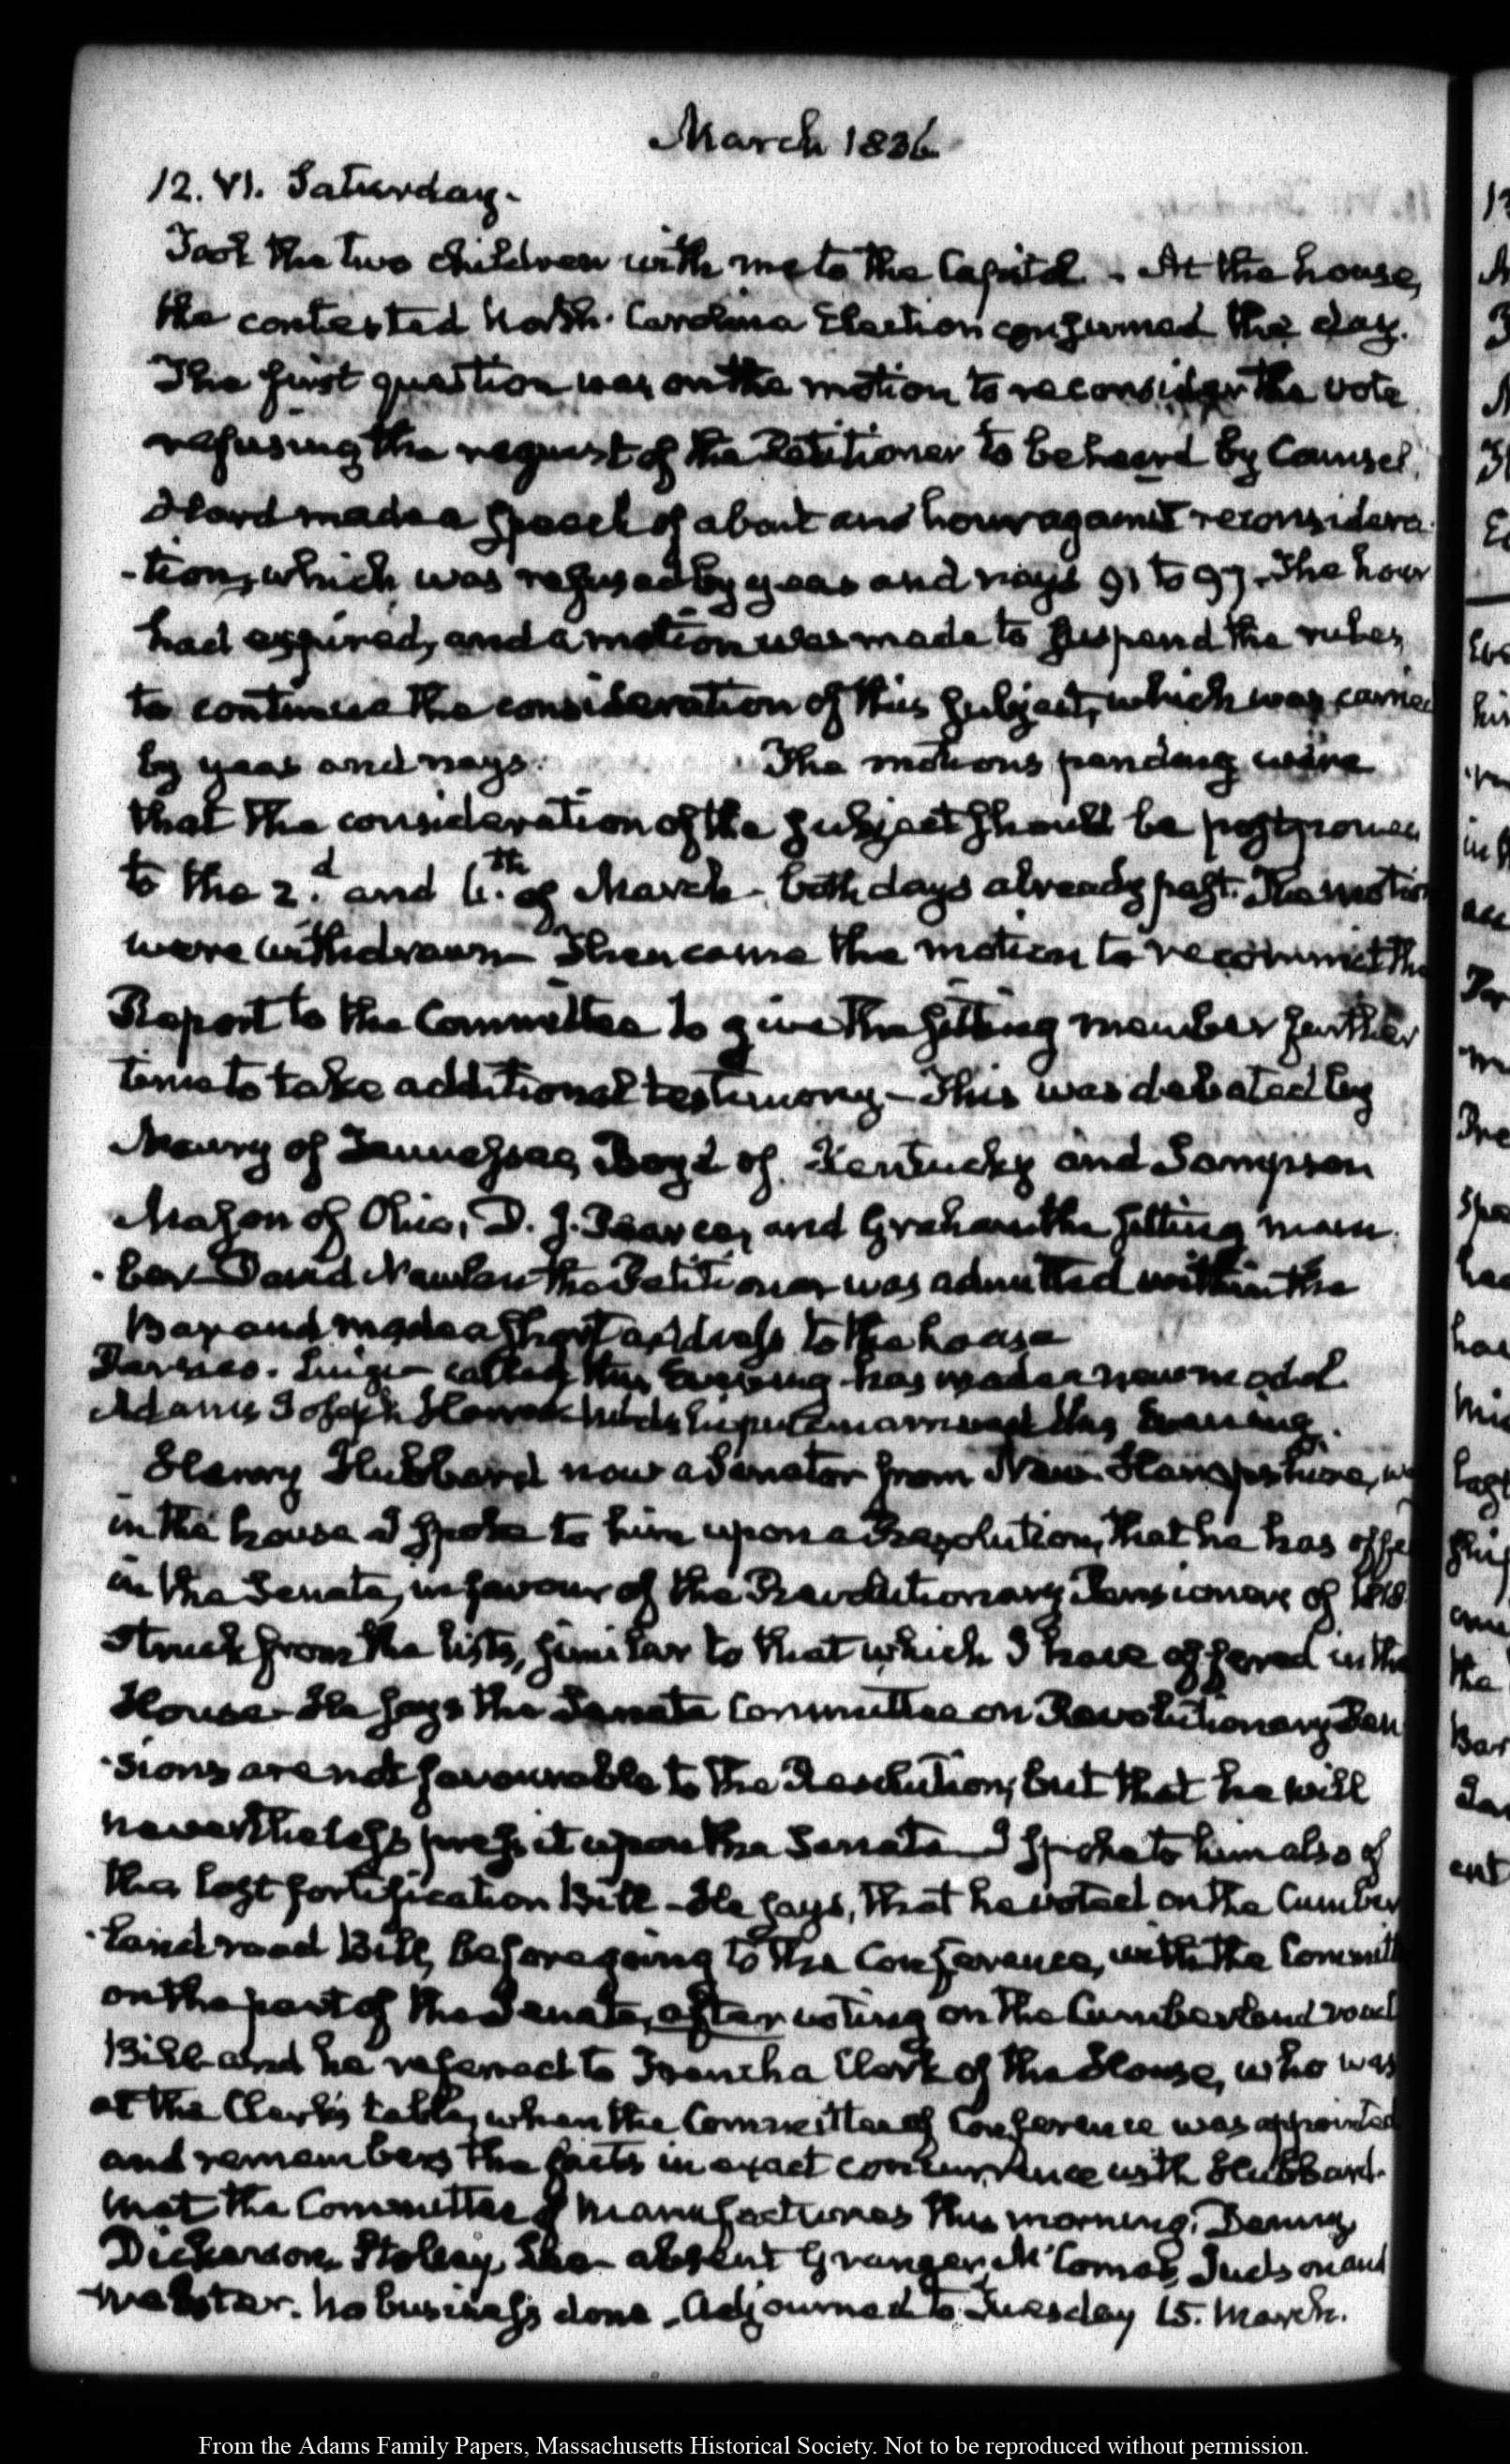 March 1836
12. VI. Saturday.
Took the two children with me to the Capitol. At the house,
the contested North-Carolina Election consumed the day.
The first question was on the motion to reconsider the vote
refusing the request of the Petitioner to be heard by Counsel.
Hard made a speech of about an hour against reconsidera-
-tion, which was refused by yeas and nays 91 to 97. The hour
had expired, and a motion was made to suspend the rules,
to continue the consideration of this subject, which was carried
by yeas and nays. The motions pending were
that the consideration of the subject should be postponed
to the 2.d and 6.th of March, both days already past. The motions
were withdrawn. Then came the motion to recommit the
Report to the Committee to give the sitting member further
time to take additional testimony. This was debated by
Maury of Tennessee, Boyd of Kentucky and Sampson
Mason of Ohio, D. J. Pearce, and Graham the sitting mem-
-ber. David Newland the Petitioner was admitted within the
Bar and made a short address to the house
Persico. Luigi called this Evening has made a new model
Adams Joseph Harrod married this Evening.
Henry Hubbard now a Senator from New-Hampshire, was
in the house. I spoke to him upon a Resolution, that he has offe
in the Senate, in favour of the Revolutionary Pensioners of 1818
struck from the lists, similar to that which I have offered in the
House. He says the Senate Committee on Revolutionary Pen-
-sions are not favourable to the Resolution; but that he will
nevertheless press it upon the Senate. I spoke to him also of
the lost fortification Bill. He says, that he voted on the Cumber-
-land road Bill, before going to the Conference, with the Committ
on the part of the Senate, after voting on the Cumberland road
Bill and he referred to Franck a Clerk of the House, who was
at the Clerk's table, when the Committee of Conference was appointed
and remembers the facts in exact concurrence with Hubbard.
Met the Committee of Manufactures this morning. Denny,
Dickerson, Holsey, absent Granger, McComas, Judson and
Webster. No business done. Adjourned to Tuesday 15. March.
From the Adams Family Papers, Massachusetts Historical Society. Not to be reproduced without permission.